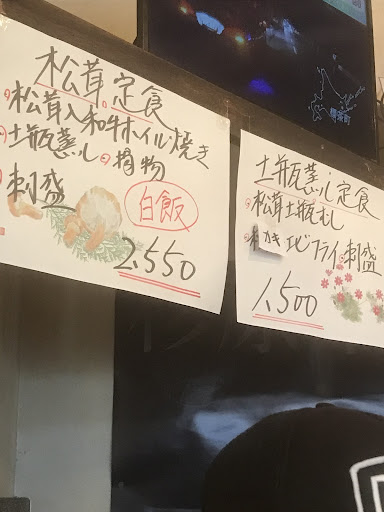 松茸定食
・松茸入和牛ホイル焼き
・土瓶蒸し・揚物
・刺盛
白飯
2,550
土瓶蒸し定食
・松茸土瓶むし
かきエビフライ・刺盛
1,500